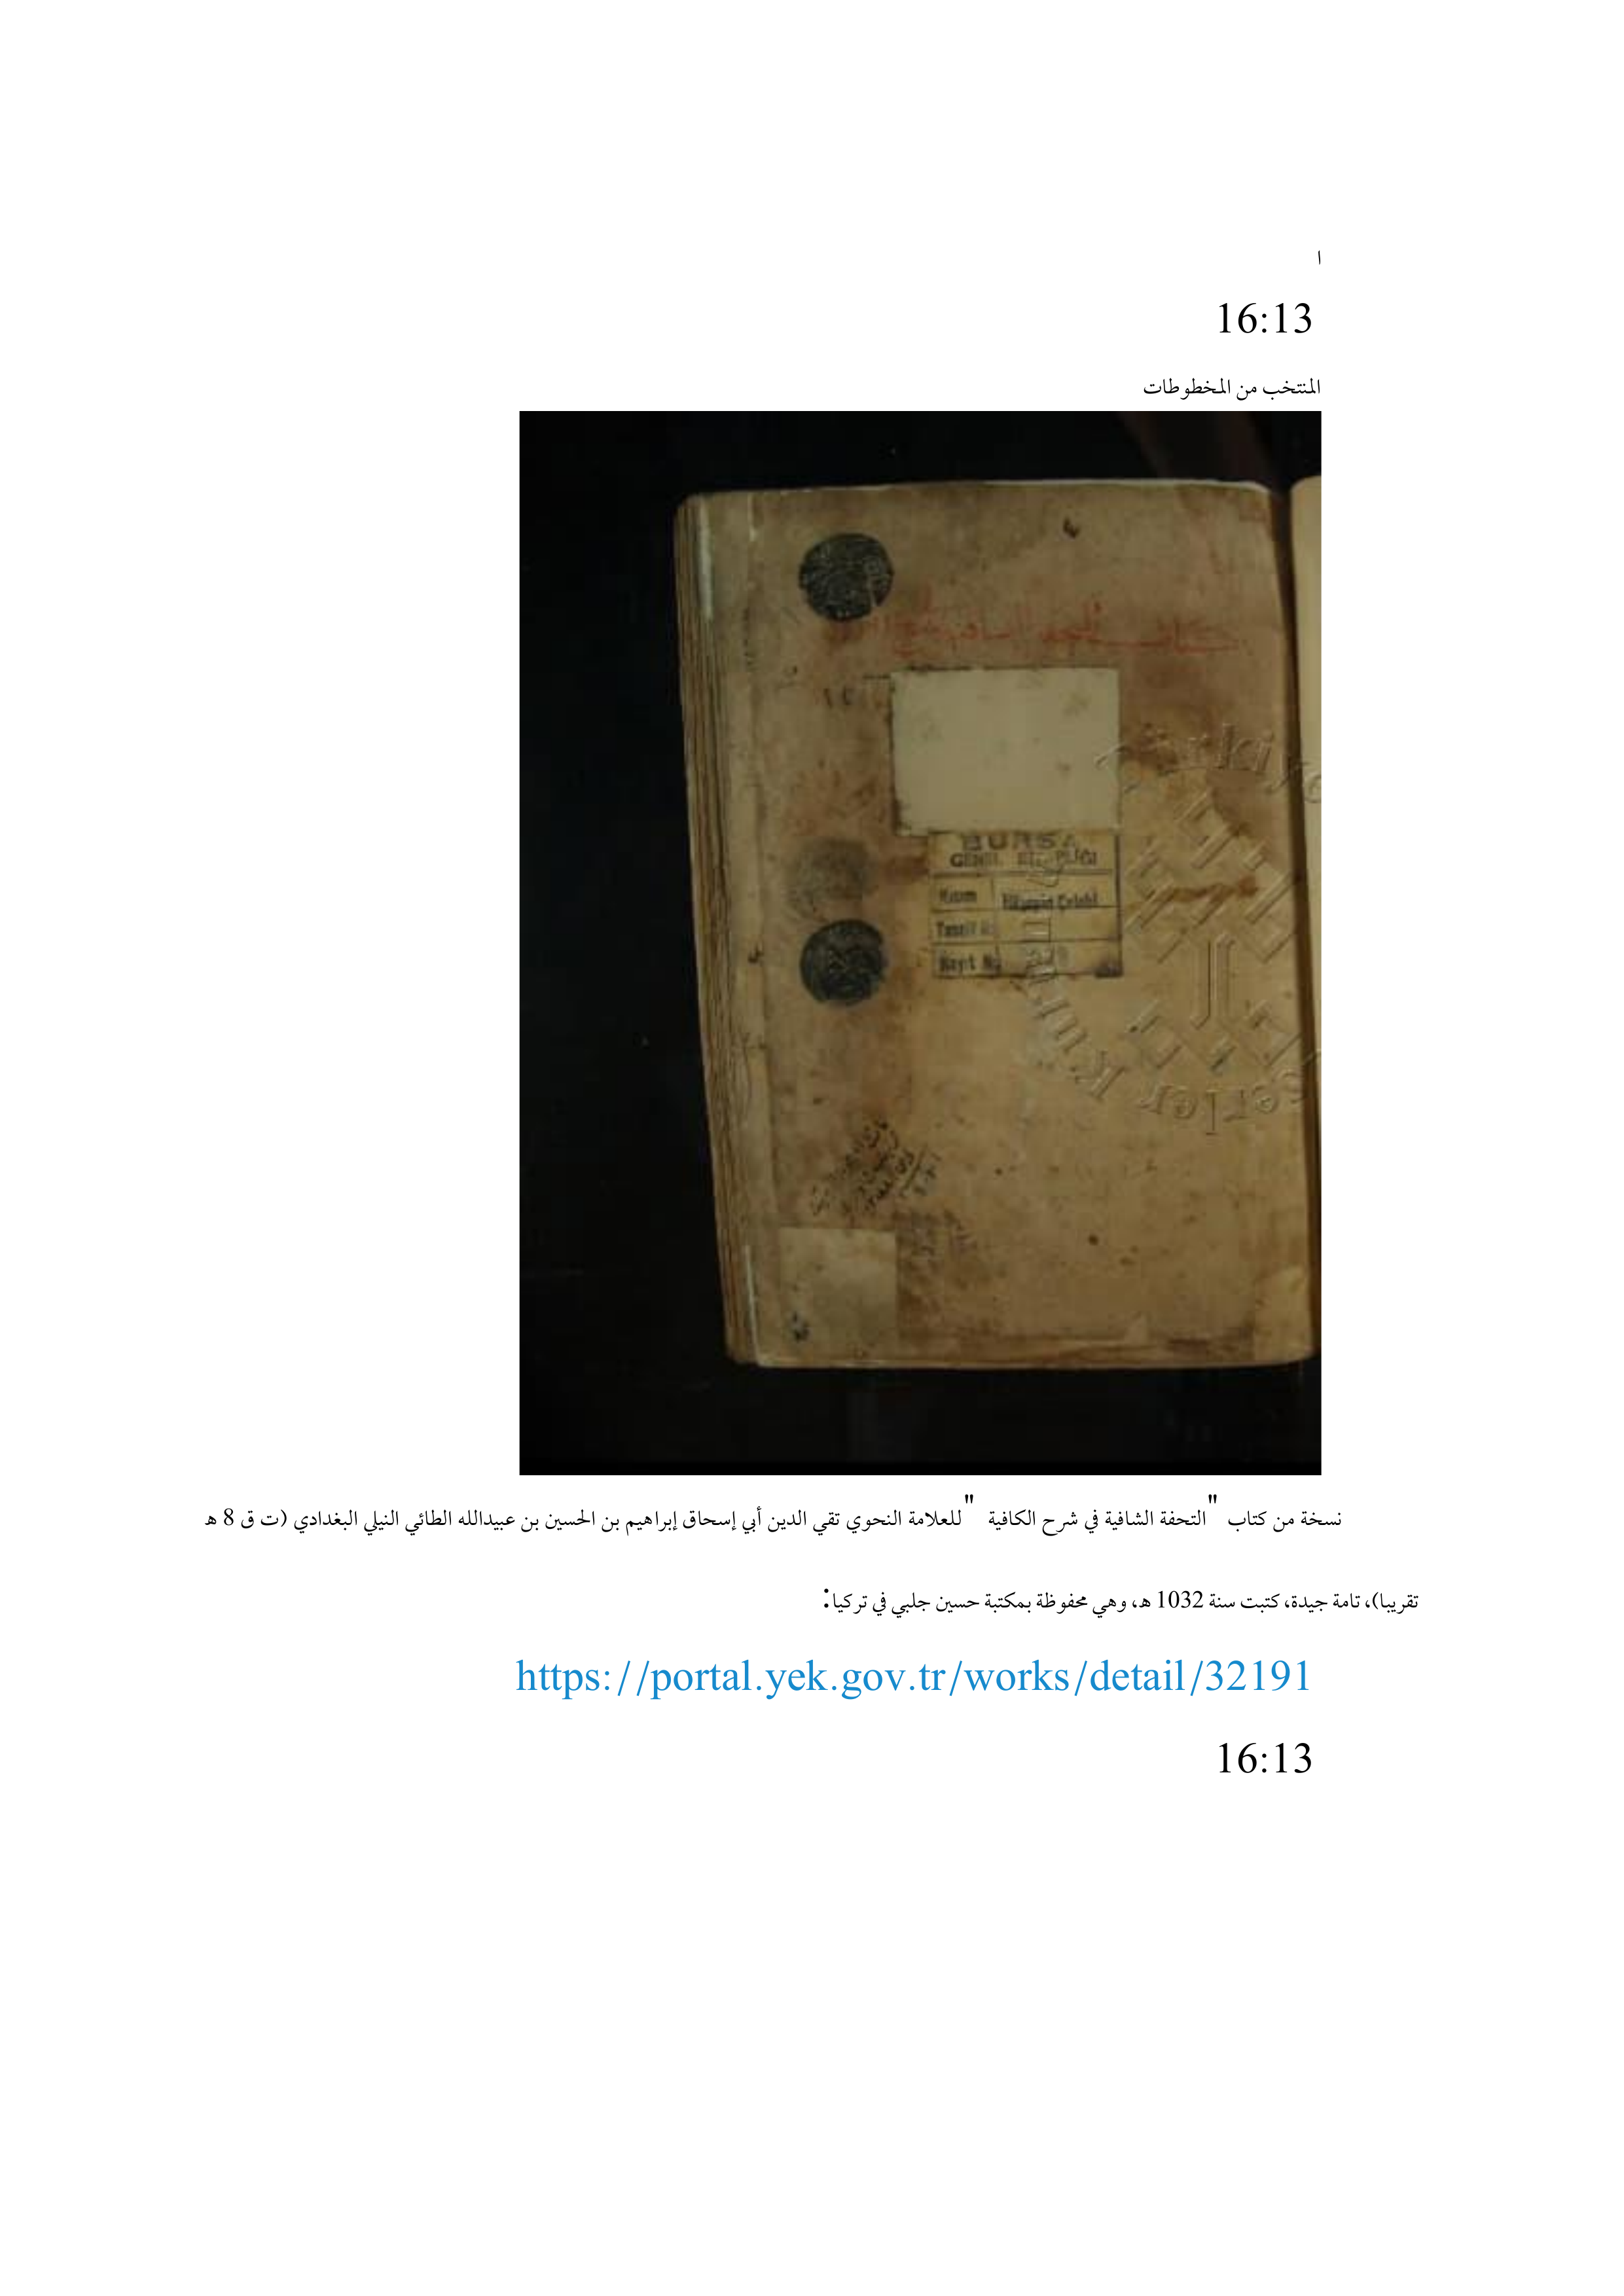 ا
16:13
المنتخب من المخطوطات
كتاب
BURSA
GENEL
Kısım
Hüseyin Çelebi
Tasnif
Kayıt No
نسخة من كتاب "التحفة الشافية في شرح الكافية " للعلامة النحوي تقي الدين أبي إسحاق إبراهيم بن الحسين بن عبيدالله الطائي النيلي البغدادي (ت ق 8 هـ
تقريبا)، تامة جيدة، كتبت سنة 1032 هـ، وهي محفوظة بمكتبة حسين جلبي في تركيا:
https://portal.yek.gov.tr/works/detail/32191
16:13